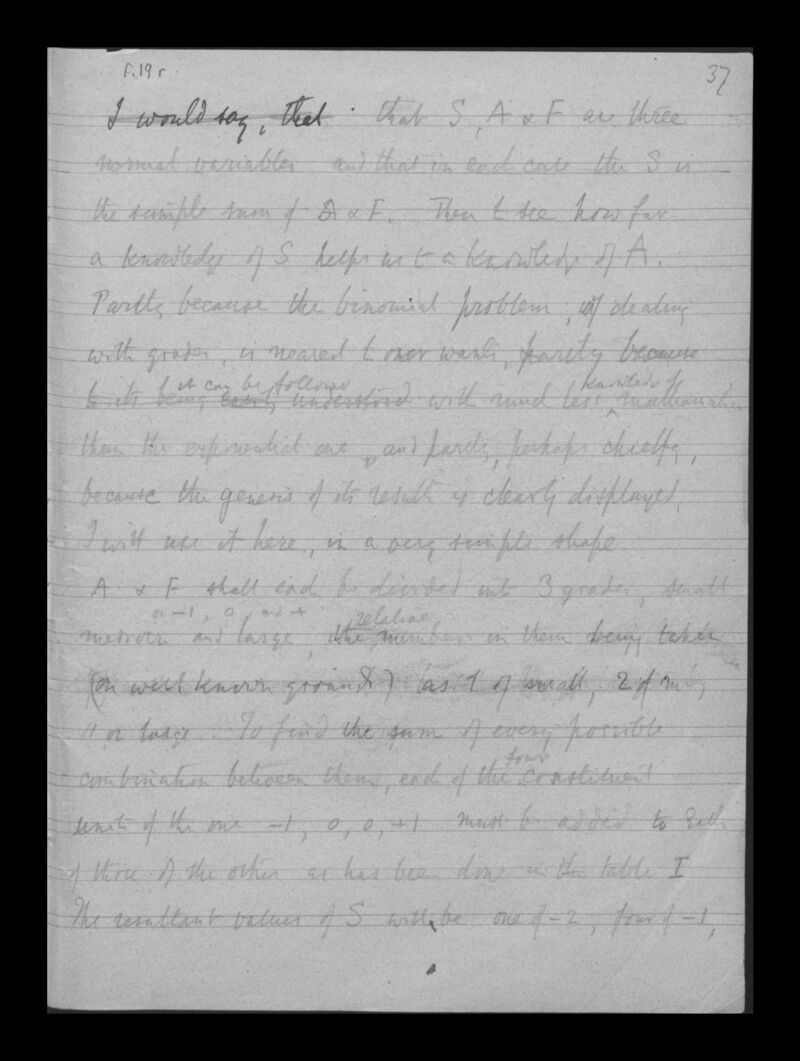 f. 19 r
37
I would say, that that S, A & F are three
normal variables and that in each case the S is
the simple sum of A & F. Then to see how far
a knowledge of S helps us to a knowledge of A.
Partly because the binomial problem, of dealing
with grades, is nearest to our wants, partly because
it can be followed knowledge of
to its being easily understood with much less mathematics
than the exponential one, and partly, perhaps chiefly,
because the genesis of its results is clearly displayed,
I will use it here, in a very simple shape
A & F shall each be divided into 3 grades, small
or -1, 0, and + relative
mediocre and large, the numbers in them being taken
(on well known grounds) as 1 of small, 2 of
1 of large. To find the sum of every possible
four
combination between them, each of the constituent
units of the one -1, 0, 0, +1 must be added to each
of those of the other as has been done in the table I
The resultant values of S will be one of -2, four of -1,